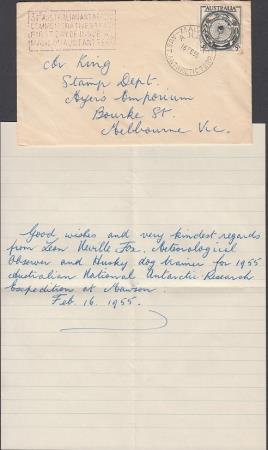 3½d AUSTRALIAN ANTARCTIC
COMMEMORATIVE STAMP
FIRST DAY OF ISSUE
AUSTRALIA
16 FE 55
King
Stamp Dept.
Myers Emporium
Bourke St.
Melbourne Vic.
Good wishes and very kindest regards
from Leon Neville Fox. Meteorological
Observer and Husky dog trainer for 1955
Australian National Antarctic Research
Expedition at Mawson.
Feb. 16. 1955.